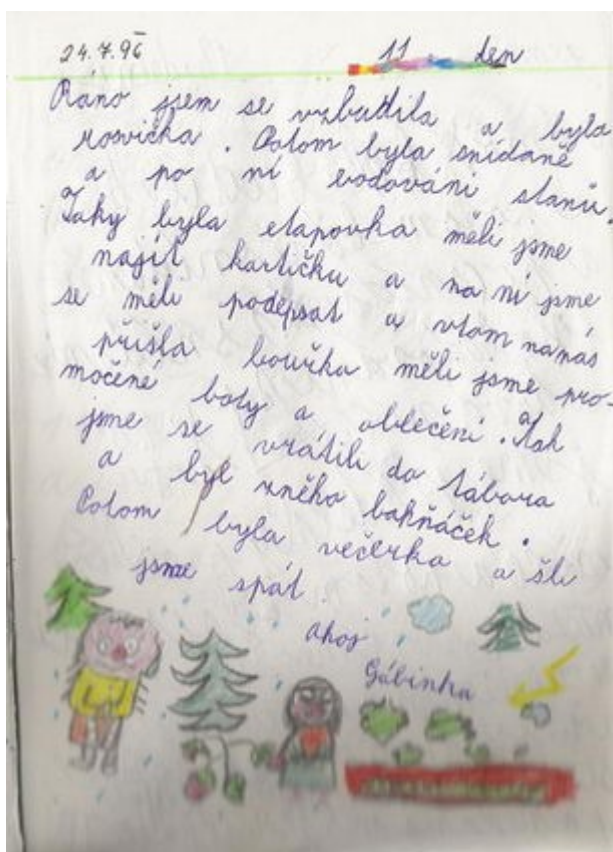 24.7.96
11. den
Ráno jsem se vzbudila a byla
rosvička. Potom byla snídaně
a po ní bodování stanů.
Taky byla etapovka měli jsme
najít kartičku a na ní jsme
se měli podepsat a vtom na nás
přišla bouřka měli jsme pro-
močené boty a oblečení. Tak
jsme se vrátili do tábora
a byl zněho bahňáček.
Potom byla večerka a šli
jsme spát.
Ahoj
Gábinka